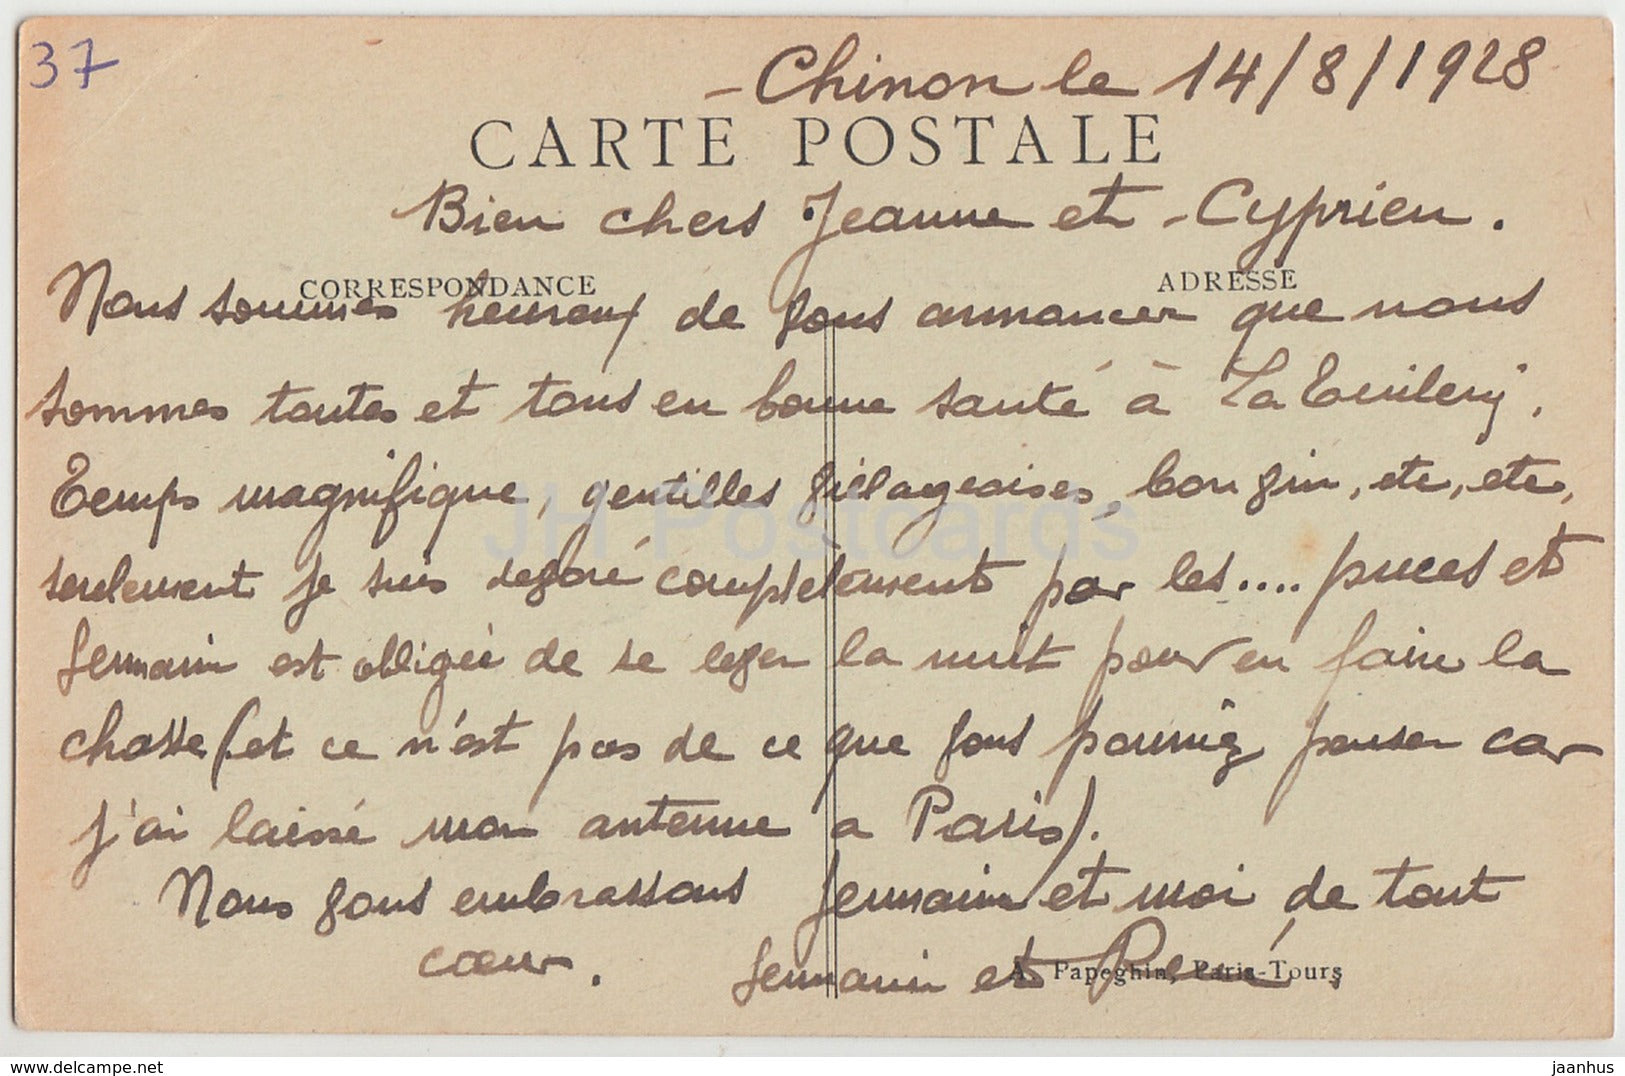 37
Chinon le 14/8/1928
CARTE POSTALE
Bien chers Jeanne et Cyprien.
CORRESPONDANCE
ADRESSE
Nous sommes heureux de vous annoncer que nous
sommes toutes et tous en bonne santé à La Tuilerie,
Temps magnifique, gentilles villageoises, bon vin, etc, etc,
seulement je suis dévoré complètement par les.... puces et
Germain est obligé de se lever la nuit pour en faire la
chasse (et ce n'est pas de ce que vous pourriez penser car
j'ai laissé mon antenne a Paris).
Nous vous embrassons Germain et moi de tout
cœur.
Germain et René
A. Papeghin, Paris-Tours
JH Postcards
jaanhus